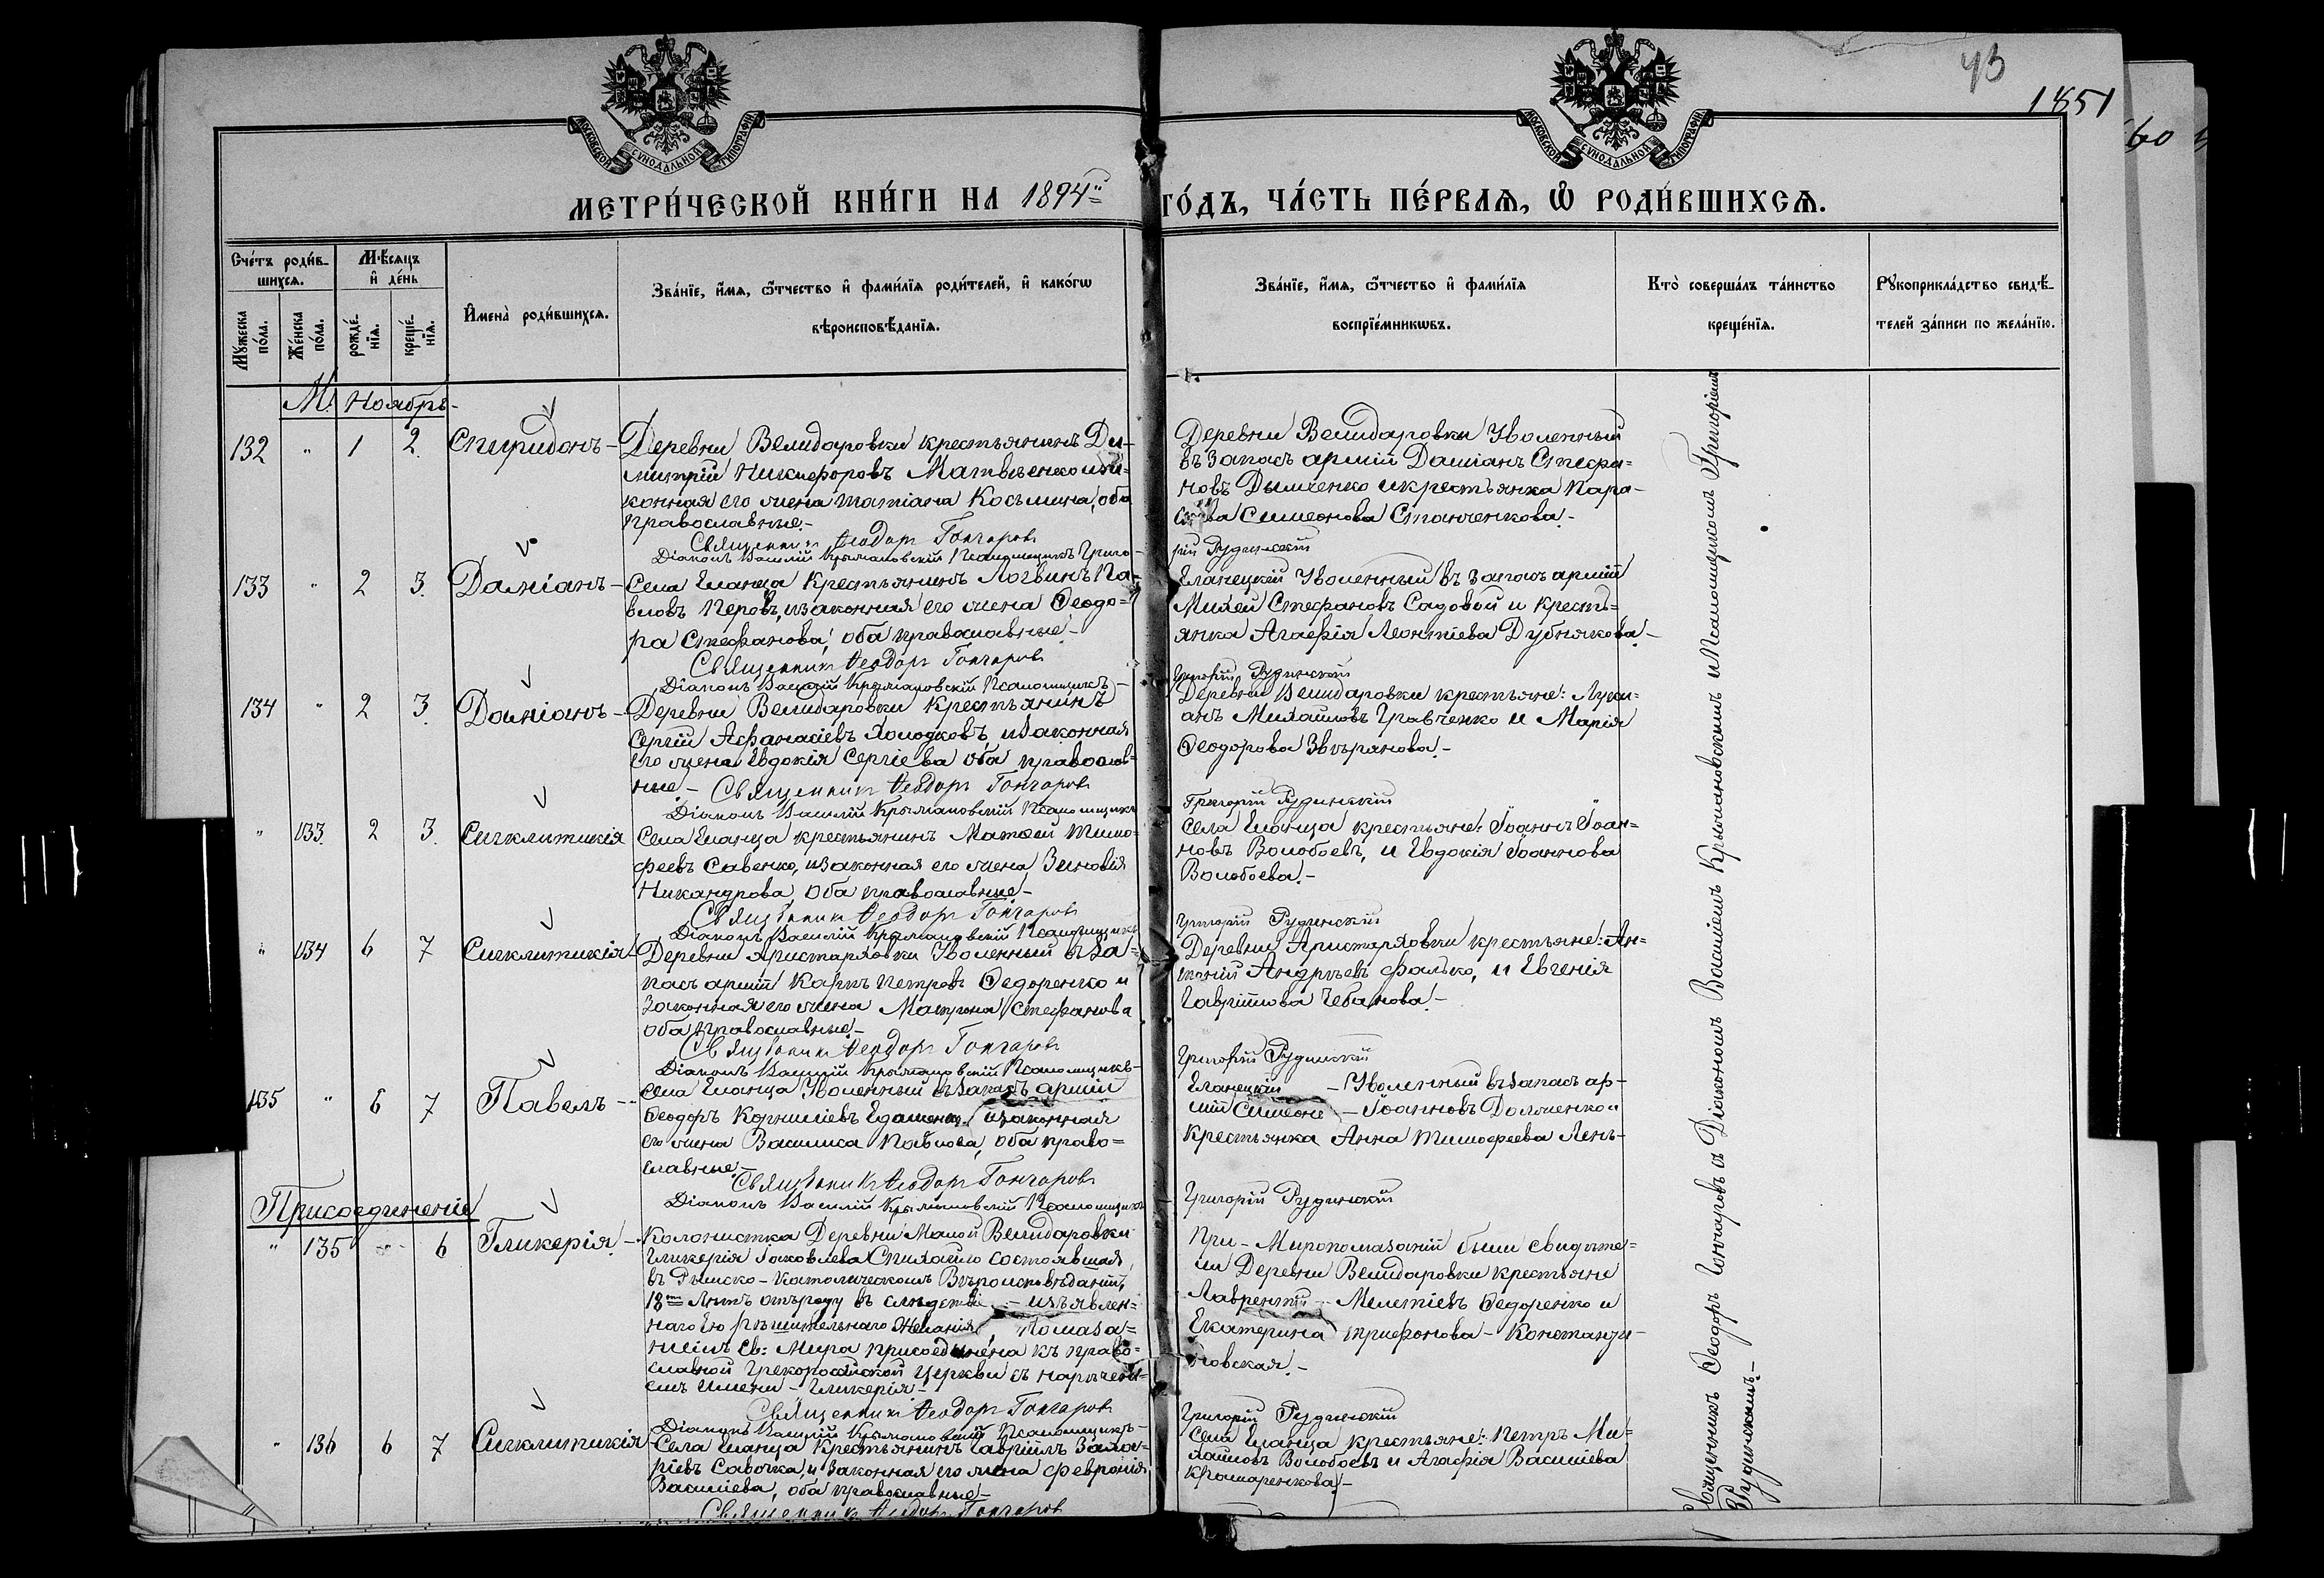 43
1851
60
МОСКОВСКОЙ СѴНОДАЛЬНОЙ ТИПОГРАФІИ
МОСКОВСКОЙ СѴНОДАЛЬНОЙ ТИПОГРАФІИ
МЕТРИ́ЧЕСКОЙ КНИ́ГИ НА 1894й ГО́ДЪ, ЧА́СТЬ ПЕ́РВАѦ, Ѽ РОДИ́ВШИХСѦ.
Сче́тъ роди́в-
шихсѧ.
Мꙋ́жеска по́ла.
Же́нска по́ла.
Мѣ́сѧцъ
и҆ де́нь
рожде́-
нїѧ.
креще́-
нїѧ.
И҆мена̀ роди́вшихсѧ.
Зва́нїе, и҆́мѧ, ѻ҆́тчество и҆ фами́лїѧ роди́телей, и҆ како́гѡ
вѣроисповѣ́данїѧ.
Зва́нїе, и҆́мѧ, ѻ҆́тчество и҆ фами́лїѧ
воспрїе́мникѡвъ.
Кто̀ соверша́лъ та́инство
креще́нїѧ.
Рꙋкоприкла́дство свидѣ́-
телей за́писи по жела́нїю.
М. Ноябрь-
132 " 1 2. Спиридонъ-
Деревни Велидаровки крестьянинъ Ди-
митрій Никифоровъ Матвѣенко и за-
конная его жена Татіана Косьмина, оба
православные.-
Священникъ Ѳеодоръ Гончаровъ
Діаконъ Василій Крыжановскій Псаломщикъ Григо-
Деревни Велидаровки Уволенный
въ запасъ арміи Даміанъ Стефа=
новъ Дымченко и крестьянка Пара-
скева Симеонова Станченкова.-
рій Рудинскій
133 " 2 3. Даміанъ-
Села Еланца крестьянинъ Логвинъ Па-
вловъ Перовъ, и законная его жена Ѳеодо=
ра Стефанова, оба православные-
Священникъ Ѳеодоръ Гончаровъ
Діаконъ Василій Крыжановскій Псаломщикъ-
Еланецкій Уволенный въ запасъ арміи
Михей Стефановъ Садовой и кресть=
янка Агафія Леонтіева Дубнякова-
Григорій Рудинскій
134 " 2 3. Даміанъ-
Деревни Велидаровки крестьянинъ
Сергій Афанасіевъ Холодковъ, и законная
его жена Евдокія Сергіева оба православ=
ные- Священникъ Ѳеодоръ Гончаровъ
Діаконъ Василій Крыжановскій Псаломщикъ
Деревни Велидаровки крестьяне: Луки=
анъ Михайловъ Кравченко и Марія
Ѳеодорова Звѣрянова.-
Григорій Рудинскій
" 133. 2 3. Сигклитикія
Села Еланца крестьянинъ Матѳей Тимо=
феевъ Савенко, и законная его жена Зиновія
Никандрова, оба православные-
Священникъ Ѳеодоръ Гончаровъ
Діаконъ Василій Крыжановскій Псаломщикъ
Села Еланца крестьяне: Іоаннъ Іоан=
новъ Волобоевъ, и Евдокія Іоаннова
Волобоева.-
Григорій Рудинскій
" 134 6 7 Сигклитикія-
Деревни Аристарховки Уволенный въ за=
пасъ арміи Карпъ Петровъ Ѳедоренко и
законная его жена Матрона Стефанова
оба православные-
Священникъ Ѳеодоръ Гончаровъ
Діаконъ Василій Крыжановскій Псаломщикъ-
Деревни Аристарховки крестьяне: Ан-
тоній Андреевъ Фалько, и Евгенія
Гавріилова Чебанова-
Григорій Рудинскій
135 " 6 7 Павелъ-
Села Еланца Уволенный въ запасъ арміи
Ѳеодоръ Корниліевъ и законная
его жена Василиса Павлова, оба право=
славные-
Священникъ Ѳеодоръ Гончаровъ
Діаконъ Василій Крыжановскій Псаломщикъ
Еланецкій - Уволенный въ запасъ ар-
міи Симеонъ - Іоанновъ Долженко и
крестьянка Анна Тимофеева Лень-
Григорій Рудинскій
Присоединеніе
" 135 " 6 Гликерія-
Колонистка Деревни Малой Велидаровки
Гликерія Іаковлева Спихайло состоявшая
въ Римско-католическомъ Вѣроисповѣданіи,
18ти лѣтъ отъ роду въ слѣдствіе - изъявлен-
наго Ею рѣшительнаго Желанія, помаза=
ніемъ Св: Мира присоединена къ право=
славной Грекороссійской Церкви съ нареченi=
емъ имени - Гликерія-
Священникъ Ѳеодоръ Гончаровъ
Діаконъ Василій Крыжановскій Псаломщикъ-
При - Миропомазаніи были свидѣте=
ли Деревни Велидаровки крестьяне
Лаврентій - Мелетіевъ Ѳедоренко и
Екатерина Трифонова - Константи-
новская.-
Григорій Рудинскій
" 136 6 7 Сигклитикія
Села Еланца крестьянинъ Гавріилъ Заха-
ріевъ Савочка, и законная его жена Февронія
Василіева, оба православные-
Священникъ Ѳеодоръ Гончаровъ
Села Еланца крестьяне: Петръ Ми=
хайловъ Волобоевъ и Агафія Василіева
Крамаренкова-
Священникъ Ѳеодоръ Гончаровъ съ Діакономъ Василіемъ Крыжановскимъ и Псаломщикомъ Григоріемъ
Рудинскимъ.-